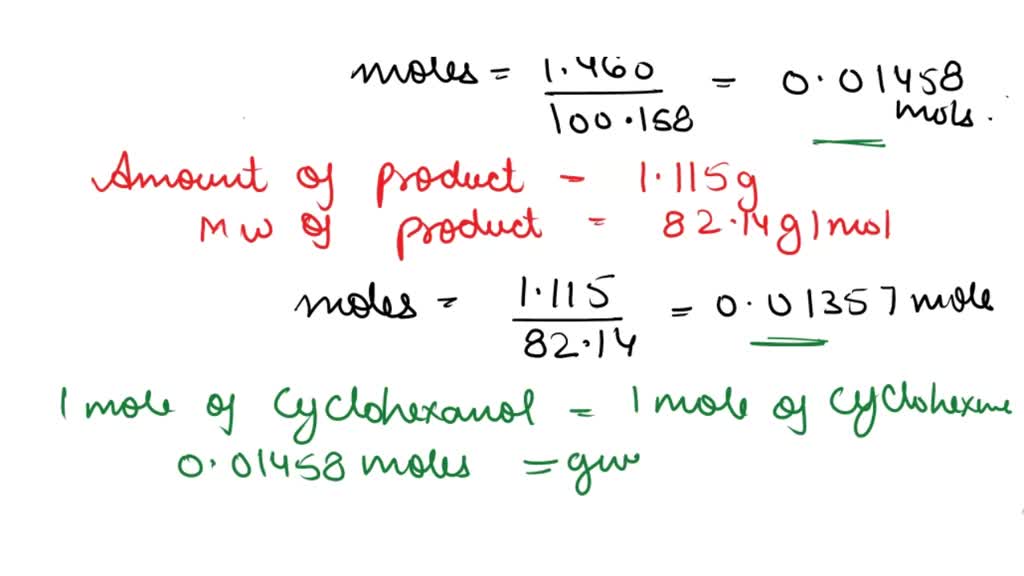 moles = 1.460 / 100.158 = 0.01458 mols.
Amount of product - 1.115g
MW of product = 82.14g/mol
moles = 1.115 / 82.14 = 0.01357 mole
1 mole of cyclohexanol = 1 mole of cyclohexene
0.01458 moles = giv